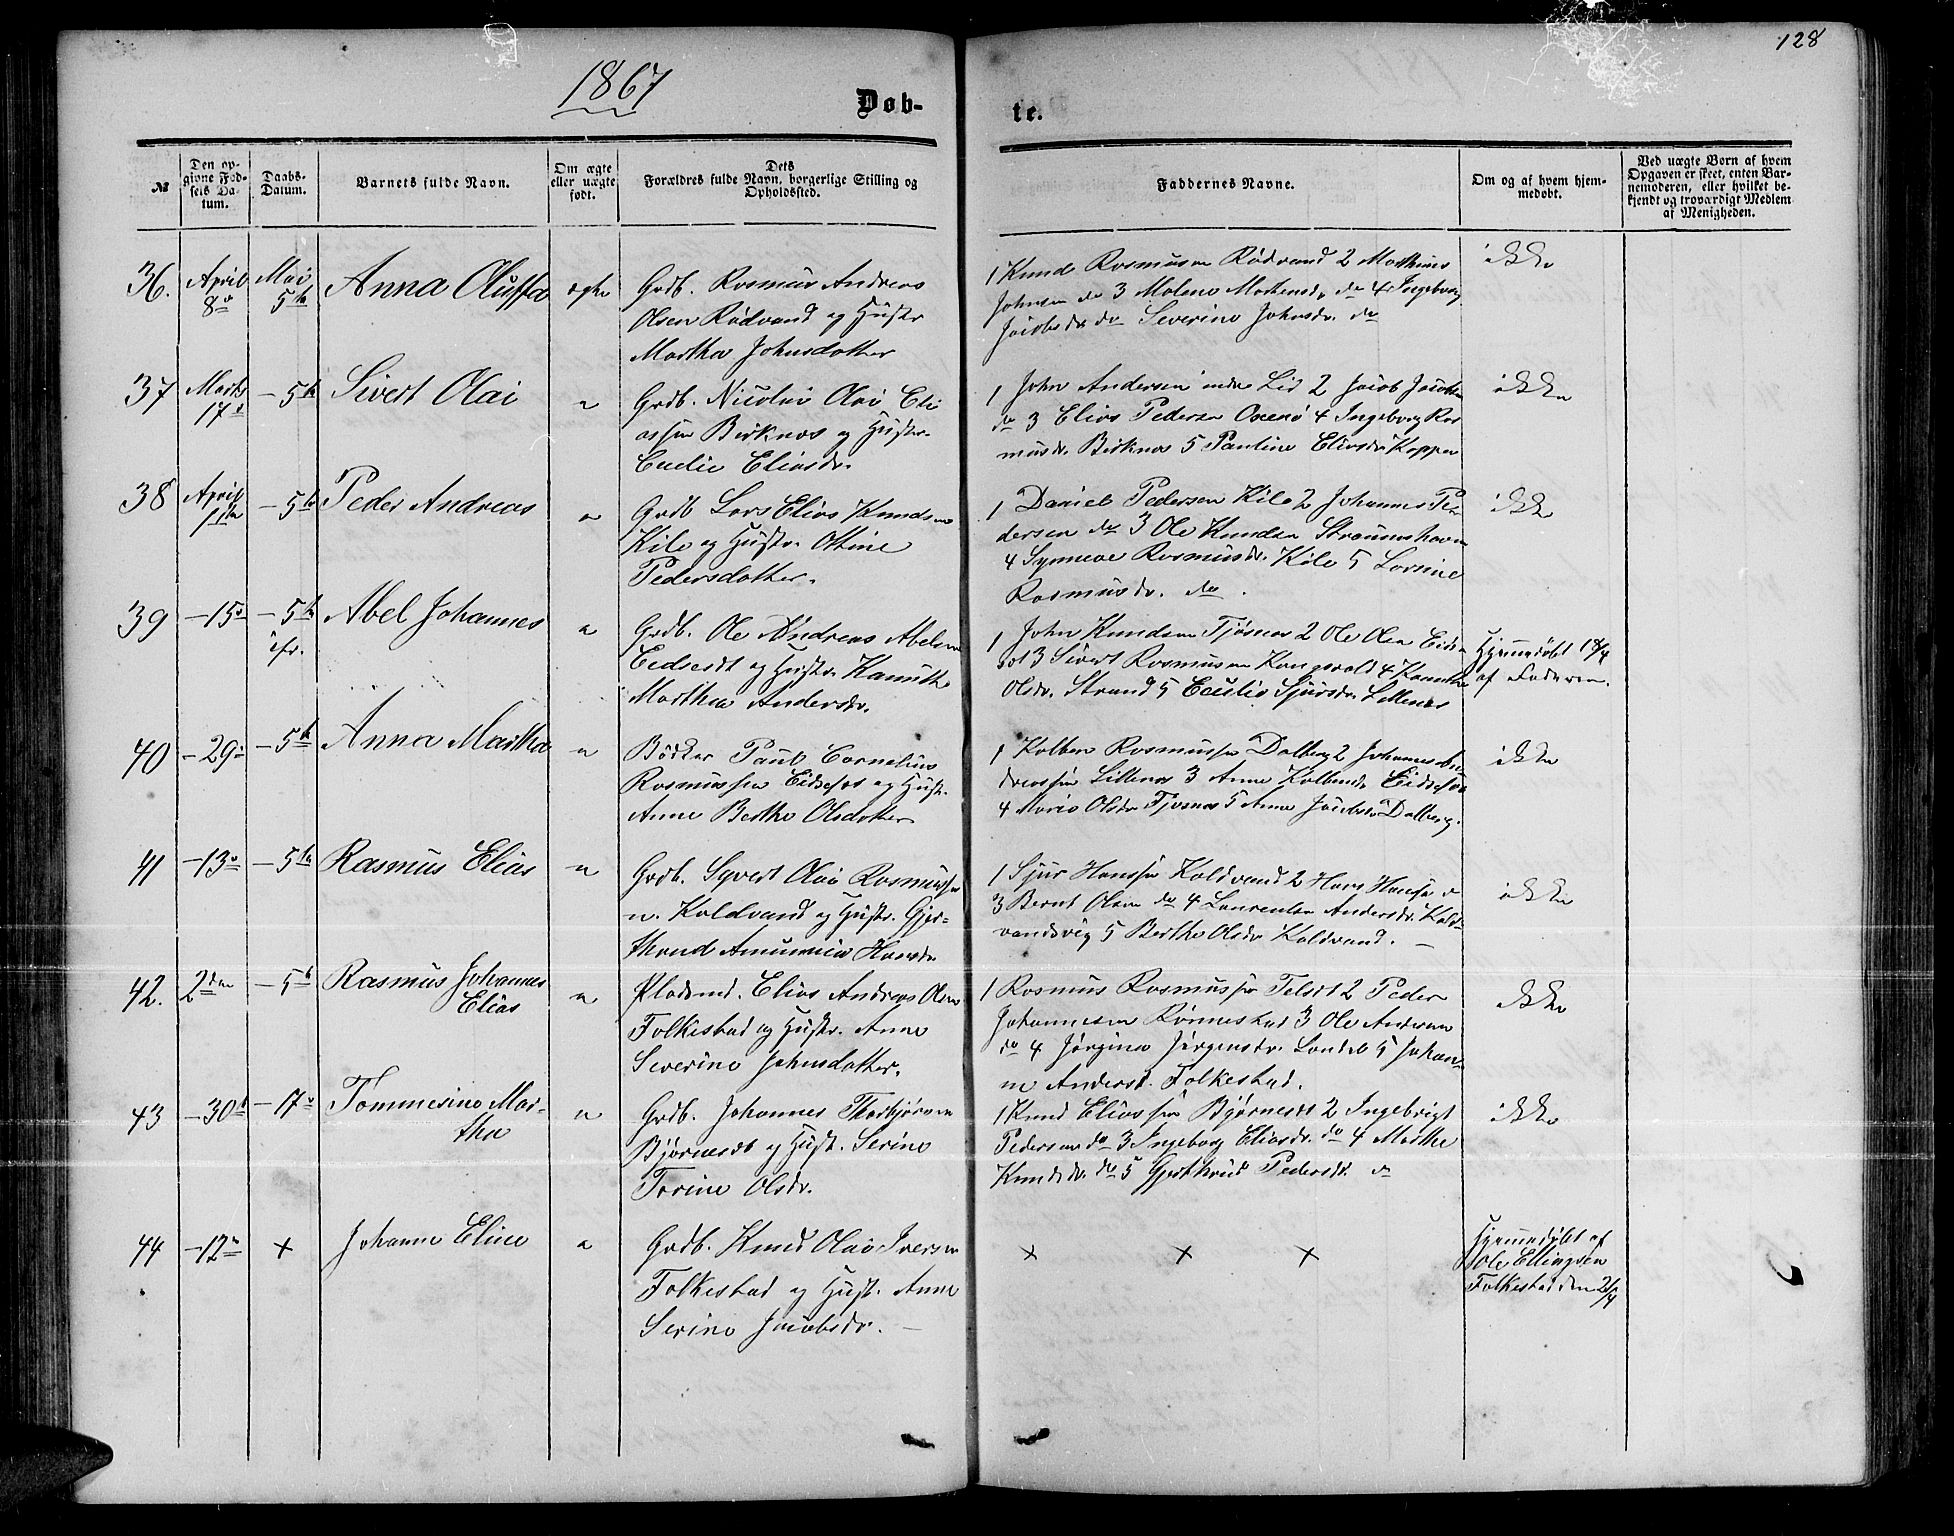 128
1867
Døb-
te.
№
Den op-
givne Fød-
sels Da-
tum.
Daabs-
Datum.
Barnets fulde Navn.
Om ægte
eller uægte
født.
Dets
Forældres fulde Navn, borgerlige Stilling og
Opholdssted.
Faddernes Navne.
Om og af hvem hjem-
medøbt.
Ved uægte Børn af hvem
Opgaven er skeet, enten Bar-
nemoderen, eller hvilket be-
kjendt og troværdigt Medlem
af Menigheden.
36.
April
8de
Mai
5te
Anna Oluffa
ægte
Grdb. Rasmus Andreas
Olsen Rødvand og Hustr
Martha Johnsdotter
1 Knud Rasmusen Rødvand 2 Mathias
Johnsen do 3 Malene Mortensdr do 4 Ingeborg
Jacobsdr do Severine Johnsdr. do
ikke
37
Marts
17de
- 5te
Sivert Olai
"
Grdb. Nicolai Olai Eli
assen Birknes og Hustr.
Cecilie Eliasdr.
1 John Andersen indre Lid 2 Jacob Jacobsen
do 3 Elias Pedersen Oxenø 4 Ingeborg Ras
musdr. Birknes 5 Pauline Eliasdr Koppen
ikke
38
April
11te
- 5te
Peder Andreas
"
Grdb Lars Elias Knudsen
Kile og Hustr. Oline
Pedersdotter.
1 Daniel Pedersen Kile 2 Johannes Pe-
dersen do 3 Ole Knudsen Straumshavn
4 Synneve Rasmusdr. Kile 5 Lovise
Rasmusdr. do .
ikke
39
- 15de
- 5te
ifr.
Abel Johannes
"
Grdb. Ole Andreas Abelsen
Eidseet og Hustr. Kanutte
Marthea Andersdr.
1 John Knudsen Tjøsnes 2 Ole Olsen Eids-
set 3 Sivert Rasmusen Kongsvold 4 Kanutte
Olsdr. Strand 5 Cecilie Sjursdr. Lillenes
Hjemmedøbt 18/4
af Faderen.
40
- 29de
- 5te
Anna Martha
"
Bødker Paul Cornelius
Rasmussen Eidsfos og Hustr.
Anne Berthe Olsdotter
1 Kolben Rasmussen Dalberg 2 Johannes An
dreassen Lillenes 3 Anne Kolbensdr Eidsfos
4 Marie Olsdr Tjosnes 5 Anne Jacobsdr Dalberg.
ikke
41
- 13de
- 5te
Rasmus Elias
"
Grdb. Syvert Olai Rasmussen
n. Koldvand og Hustr. Gjer-
thrud Hansdr
1 Sjur Hanssen Koldvand 2 Hans Hansen do
3 Bernt Olsen do 4 Laurentse Andersdr. Kold-
vandsvig 5 Berthe Olsdr Koldvand. -
ikke
42.
2den
- 5te
Rasmus Johannes
Elias
"
Pladsmd. Elias Andreas Olsen
Folkestad og Hustr. Anne
Severine Johnsdotter.
1 Rasmus Rasmussen Velset 2 Peder
Johannesen Rønnestad 3 Ole Andersen
do 4 Jørgine Jørgensdr. Løndal 5 Johan-
ne Andersd. Folkestad.
ikke
43
- 30te
- 17de
Tommesine Mar-
tha
"
Grdb. Johannes Thorbjørnsen
Bjørneset og Hustr. Serine
Torine Olsdr.
1 Knud Eliassen Bjørneset 2 Ingebrigt
Pedersen do 3 Ingeborg Eliasdr. do 4 Marthe
Knudsdr. do 5 Gjerthrud Pedersdr. do
ikke
44
- 12te
+
Johanne Eline
"
Grdb. Knud Olai Iversen
Folkestad og Hustr. Anne
Serine Jacobsdr. -
+ + +
Hjemmedøbt af
Ole Ellingsen
Folkestad den 21/4